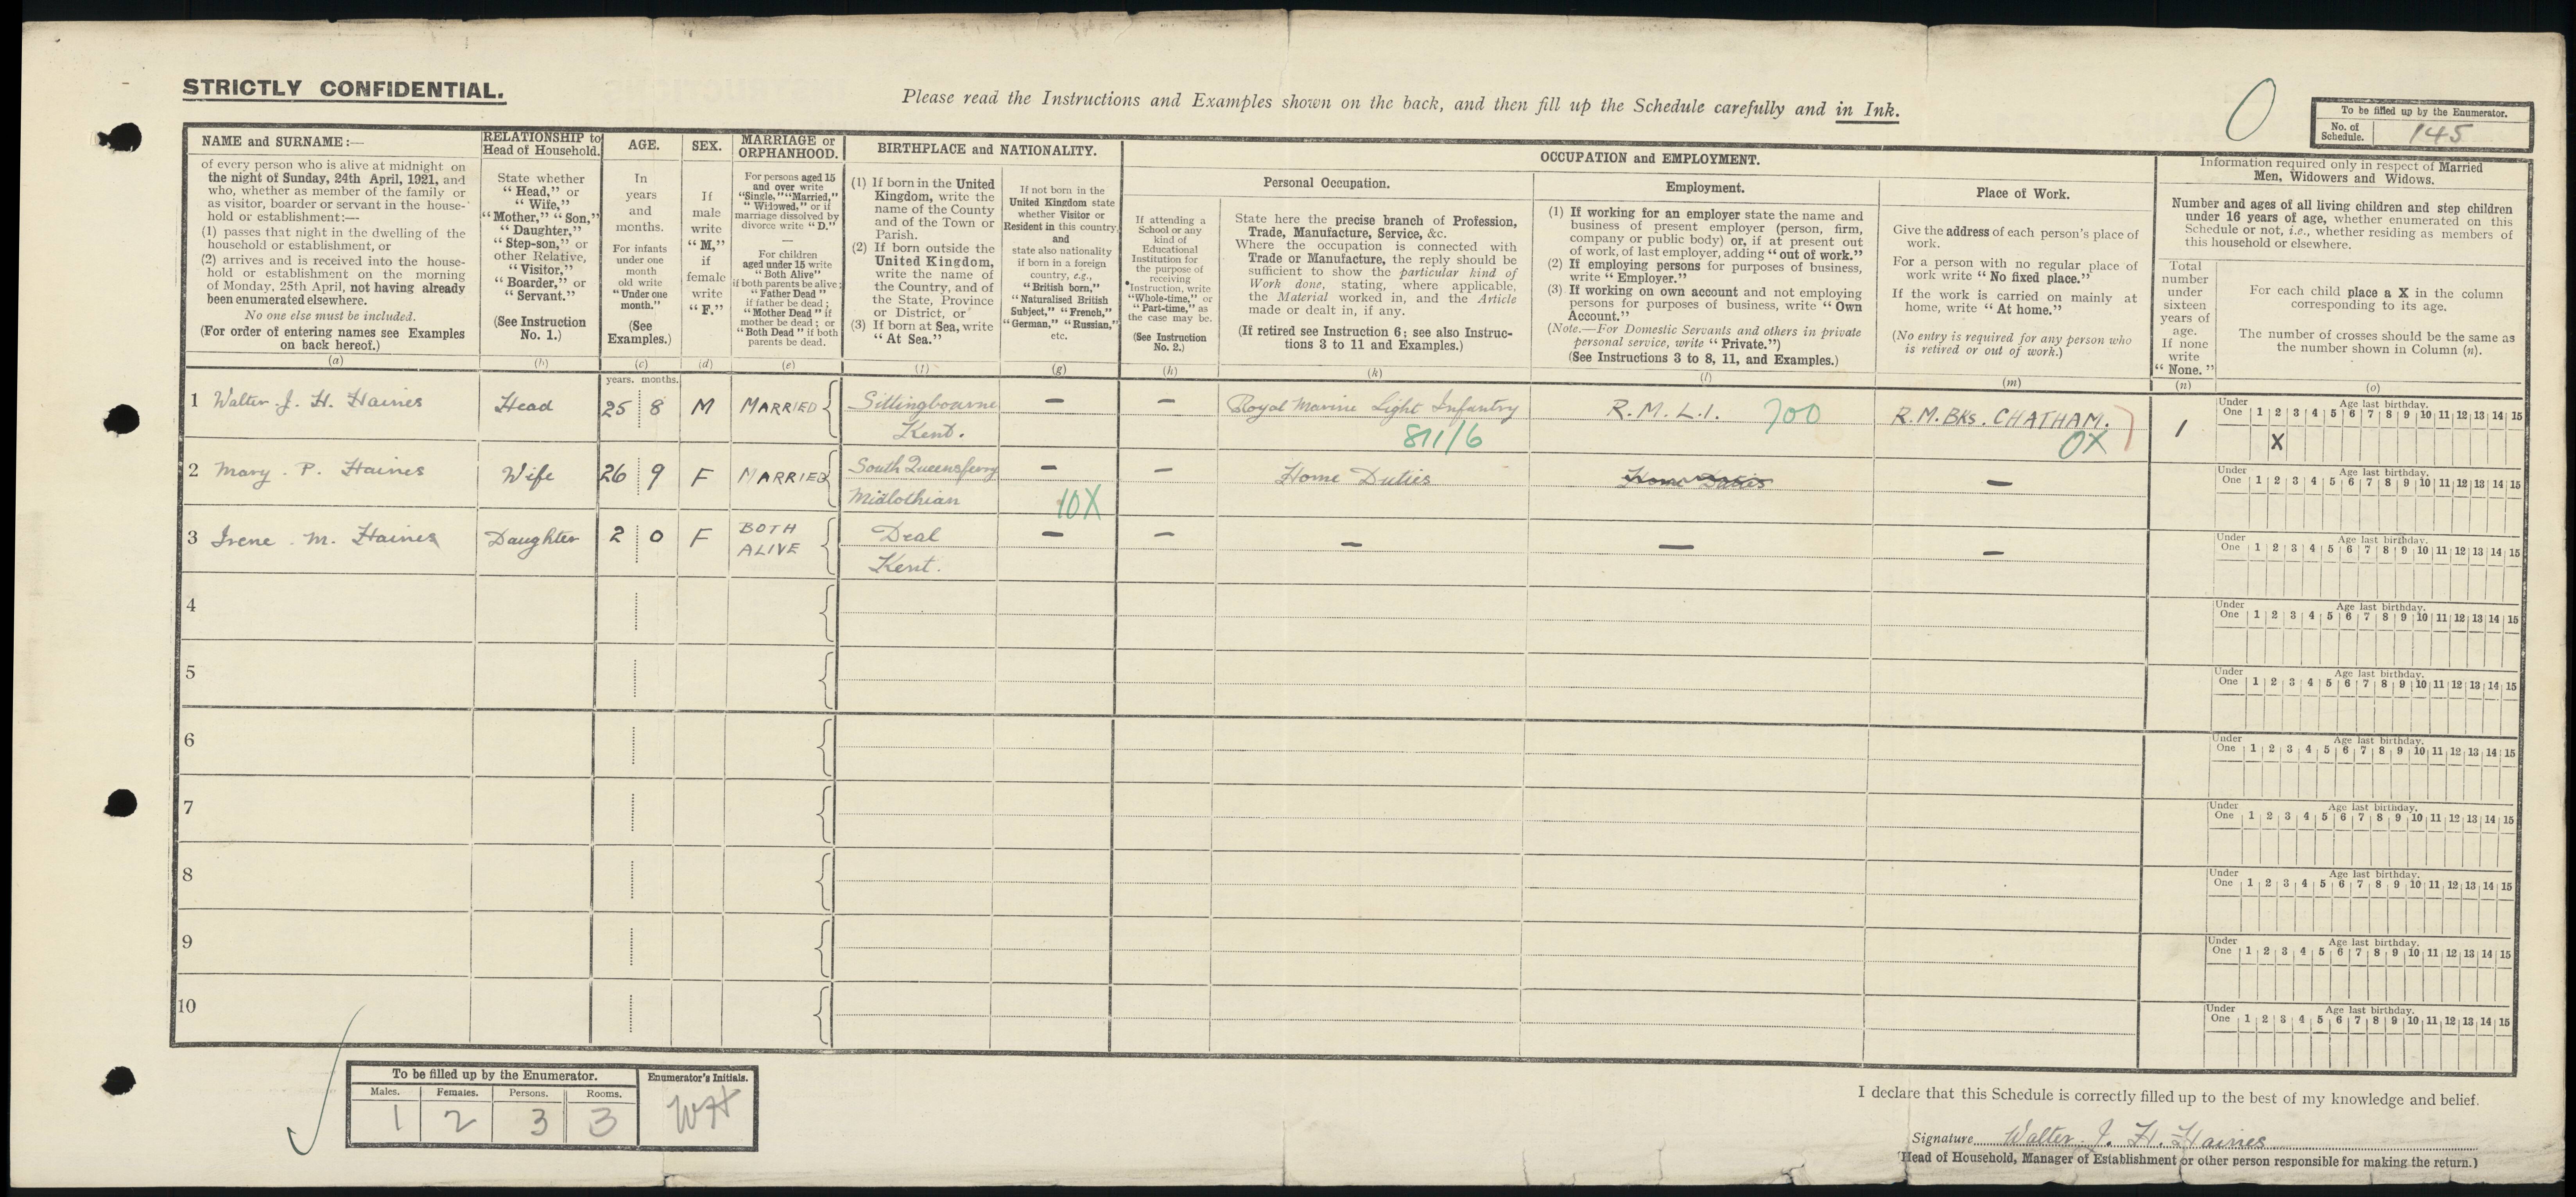 STRICTLY CONFIDENTIAL.
Please read the Instructions and Examples shown on the back, and then fill up the Schedule carefully and in Ink.
0
To be filled up by the Enumerator.
No. of Schedule. 145
NAME and SURNAME:—
of every person who is alive at midnight on
the night of Sunday, 24th April, 1921, and
who, whether as member of the family or
as visitor, boarder or servant in the house-
hold or establishment:—
(1) passes that night in the dwelling of the
household or establishment, or
(2) arrives and is received into the house-
hold or establishment on the morning
of Monday, 25th April, not having already
been enumerated elsewhere.
No one else must be included.
(For order of entering names see Examples
on back hereof.)
(a)
RELATIONSHIP to
Head of Household.
State whether
"Head," or
"Wife,"
"Mother," "Son,"
"Daughter,"
"Step-son," or
other Relative,
"Visitor,"
"Boarder," or
"Servant."
(See Instruction
No. 1.)
(b)
AGE.
In
years
and
months.
For infants
under one
month
old write
"Under one
month."
(See
Examples.)
(c)
years. months.
SEX.
If
male
write
"M,"
if
female
write
"F."
(d)
MARRIAGE or
ORPHANHOOD.
For persons aged 15
and over write
"Single," "Married,"
"Widowed," or if
marriage dissolved by
divorce write "D."
—
For children
aged under 15 write
"Both Alive"
if both parents be alive;
"Father Dead"
if father be dead;
"Mother Dead" if
mother be dead; or
"Both Dead" if both
parents be dead.
(e)
BIRTHPLACE and NATIONALITY.
(1) If born in the United
Kingdom, write the
name of the County
and of the Town or
Parish.
(2) If born outside the
United Kingdom,
write the name of
the Country, and of
the State, Province
or District, or
(3) If born at Sea, write
"At Sea."
(f)
If not born in the
United Kingdom state
whether Visitor or
Resident in this country,
and
state also nationality
if born in a foreign
country, e.g.,
"British born,"
"Naturalised British
Subject," "French,"
"German," "Russian,"
etc.
(g)
OCCUPATION and EMPLOYMENT.
If attending a
School or any
kind of
Educational
Institution for
the purpose of
receiving
Instruction, write
"Whole-time," or
"Part-time," as
the case may be.
(See Instruction
No. 2.)
(h)
Personal Occupation.
State here the precise branch of Profession,
Trade, Manufacture, Service, &c.
Where the occupation is connected with
Trade or Manufacture, the reply should be
sufficient to show the particular kind of
Work done, stating, where applicable,
the Material worked in, and the Article
made or dealt in, if any.
(If retired see Instruction 6; see also Instruc-
tions 3 to 11 and Examples.)
(k)
Employment.
(1) If working for an employer state the name and
business of present employer (person, firm,
company or public body) or, if at present out
of work, of last employer, adding "out of work."
(2) If employing persons for purposes of business,
write "Employer."
(3) If working on own account and not employing
persons for purposes of business, write "Own
Account."
(Note.—For Domestic Servants and others in private
personal service, write "Private.")
(See Instructions 3 to 8, 11, and Examples.)
(l)
Place of Work.
Give the address of each person's place of
work.
For a person with no regular place of
work write "No fixed place."
If the work is carried on mainly at
home, write "At home."
(No entry is required for any person who
is retired or out of work.)
(m)
Information required only in respect of Married
Men, Widowers and Widows.
Number and ages of all living children and step children
under 16 years of age, whether enumerated on this
Schedule or not, i.e., whether residing as members of
this household or elsewhere.
Total
number
under
sixteen
years of
age.
If none
write
"None."
(n)
For each child place a X in the column
corresponding to its age.
The number of crosses should be the same as
the number shown in Column (n).
(o)
1 Walter J. H. Haines Head 25 8 M MARRIED Sittingbourne — — Royal Marine Light Infantry R.M.L.I. 700 R.M.BKS. CHATHAM. 1
Kent. 811/6 0X
Age last birthday.
Under One 1 2 3 4 5 6 7 8 9 10 11 12 13 14 15
X
2 Mary P. Haines Wife 26 9 F MARRIED South Queensferry — — Home Duties Home Duties —
Midlothian 10X
Age last birthday.
Under One 1 2 3 4 5 6 7 8 9 10 11 12 13 14 15
3 Irene M. Haines Daughter 2 0 F BOTH ALIVE Deal — — — — —
Kent.
Age last birthday.
Under One 1 2 3 4 5 6 7 8 9 10 11 12 13 14 15
4
Age last birthday.
Under One 1 2 3 4 5 6 7 8 9 10 11 12 13 14 15
5
Age last birthday.
Under One 1 2 3 4 5 6 7 8 9 10 11 12 13 14 15
6
Age last birthday.
Under One 1 2 3 4 5 6 7 8 9 10 11 12 13 14 15
7
Age last birthday.
Under One 1 2 3 4 5 6 7 8 9 10 11 12 13 14 15
8
Age last birthday.
Under One 1 2 3 4 5 6 7 8 9 10 11 12 13 14 15
9
Age last birthday.
Under One 1 2 3 4 5 6 7 8 9 10 11 12 13 14 15
10
Age last birthday.
Under One 1 2 3 4 5 6 7 8 9 10 11 12 13 14 15
To be filled up by the Enumerator.
Males. Females. Persons. Rooms.
1 2 3 3
Enumerator's Initials.
WH
I declare that this Schedule is correctly filled up to the best of my knowledge and belief.
Signature Walter J. H. Haines
(Head of Household, Manager of Establishment or other person responsible for making the return.)